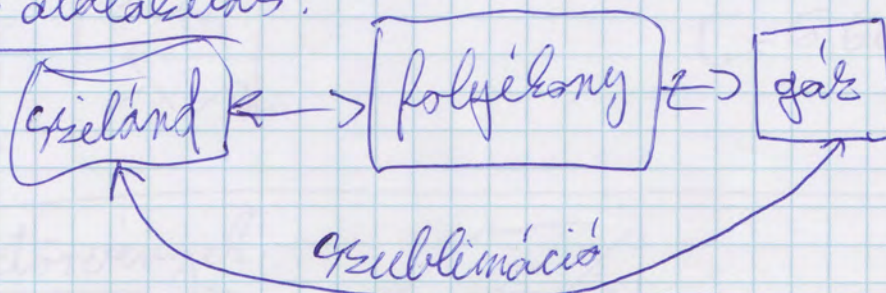 átalakulás:
szilárd folyékony gáz
szublimáció